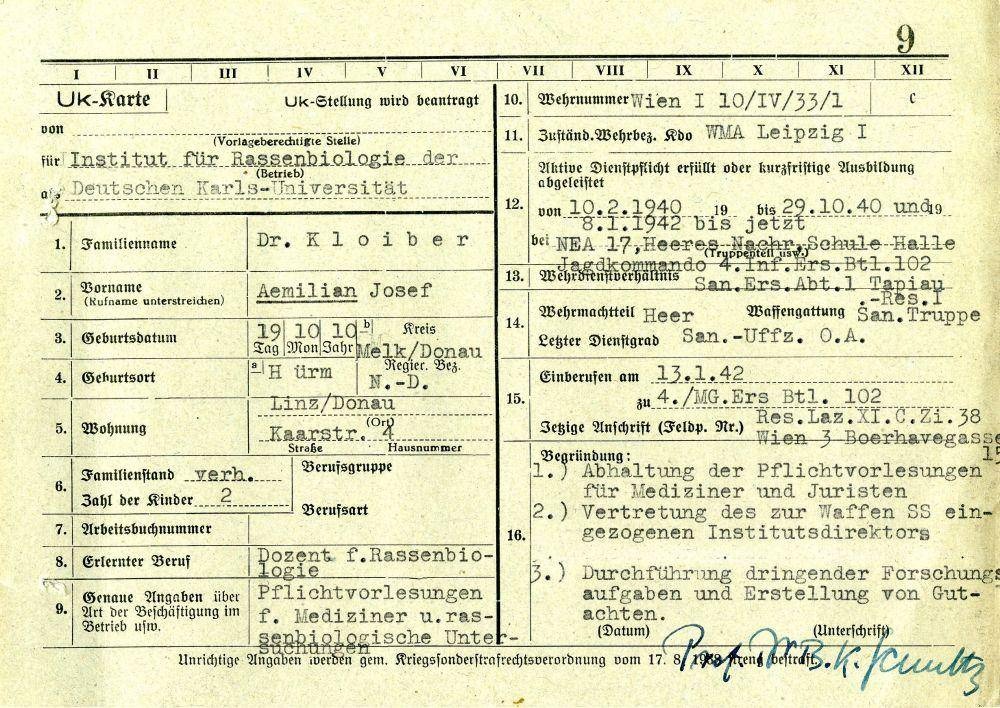 9
I II III IV V VI VII VIII IX X XI XII
Uk-Karte Uk-Stellung wird beantragt
von
(Vorlageberechtigte Stelle)
für Institut für Rassenbiologie der
(Betrieb)
als Deutschen Karls-Universität
1. Familienname Dr. Kloiber
2. Vorname Aemilian Josef
(Rufname unterstreichen)
3. Geburtsdatum 19 10 10 b Kreis
Tag Mon Jahr Melk/Donau
4. Geburtsort a Hürm Regier. Bez.
N.-D.
Linz/Donau
5. Wohnung (Ort)
Kaarstr. 4
Straße Hausnummer
6. Familienstand verh. Berufsgruppe
Zahl der Kinder 2
Berufsart
7. Arbeitsbuchnummer
8. Erlernter Beruf Dozent f.Rassenbio-
logie
9. Genaue Angaben über Pflichtvorlesungen
Art der Beschäftigung im f. Mediziner u.ras-
Betrieb usw. senbiologische Unter-
suchungen
10. Wehrnummer Wien I 10/IV/33/1 C
11. Zuständ.Wehrbez. Kdo WMA Leipzig I
12. Aktive Dienstpflicht erfüllt oder kurzfristige Ausbildung
abgeleistet
von 10.2.1940 19 bis 29.10.40 und 19
8.1.1942 bis jetzt
bei NEA 17,Heeres Nachr.Schule Halle
(Truppenteil usw.)
Jagdkommando 4.Inf.Ers.Btl.102
13. Wehrdienstverhältnis San.Ers.Abt.1 Tapiau
.-Res.I
14. Wehrmachtteil Heer Waffengattung San.Truppe
Letzter Dienstgrad San.-Uffz. O.A.
15. Einberufen am 13.1.42
zu 4./MG.Ers Btl. 102
Jetzige Anschrift (Feldp. Nr.) Res.Laz.XI.C.Zi.38
Wien 3 Boerhavegasse
15
16. Begründung:
1.) Abhaltung der Pflichtvorlesungen
für Mediziner und Juristen
2.) Vertretung des zur Waffen SS ein-
gezogenen Institutsdirektors
3.) Durchführung dringender Forschungs
aufgaben und Erstellung von Gut-
achten.
(Datum) (Unterschrift)
Prof. Dr B.K. Schultz
Unrichtige Angaben werden gem. Kriegssonderstrafrechtsverordnung vom 17. 8. 1938 streng bestraft.